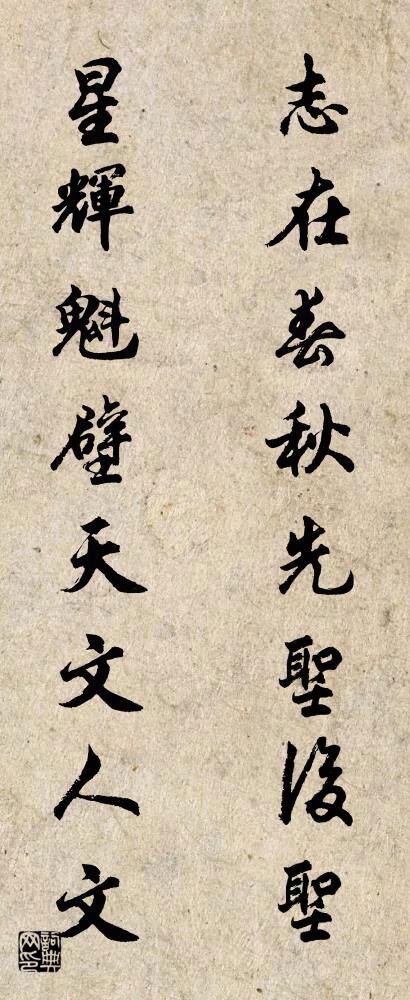 志在春秋先聖後聖
星輝魁壁天文人文
詞典网印